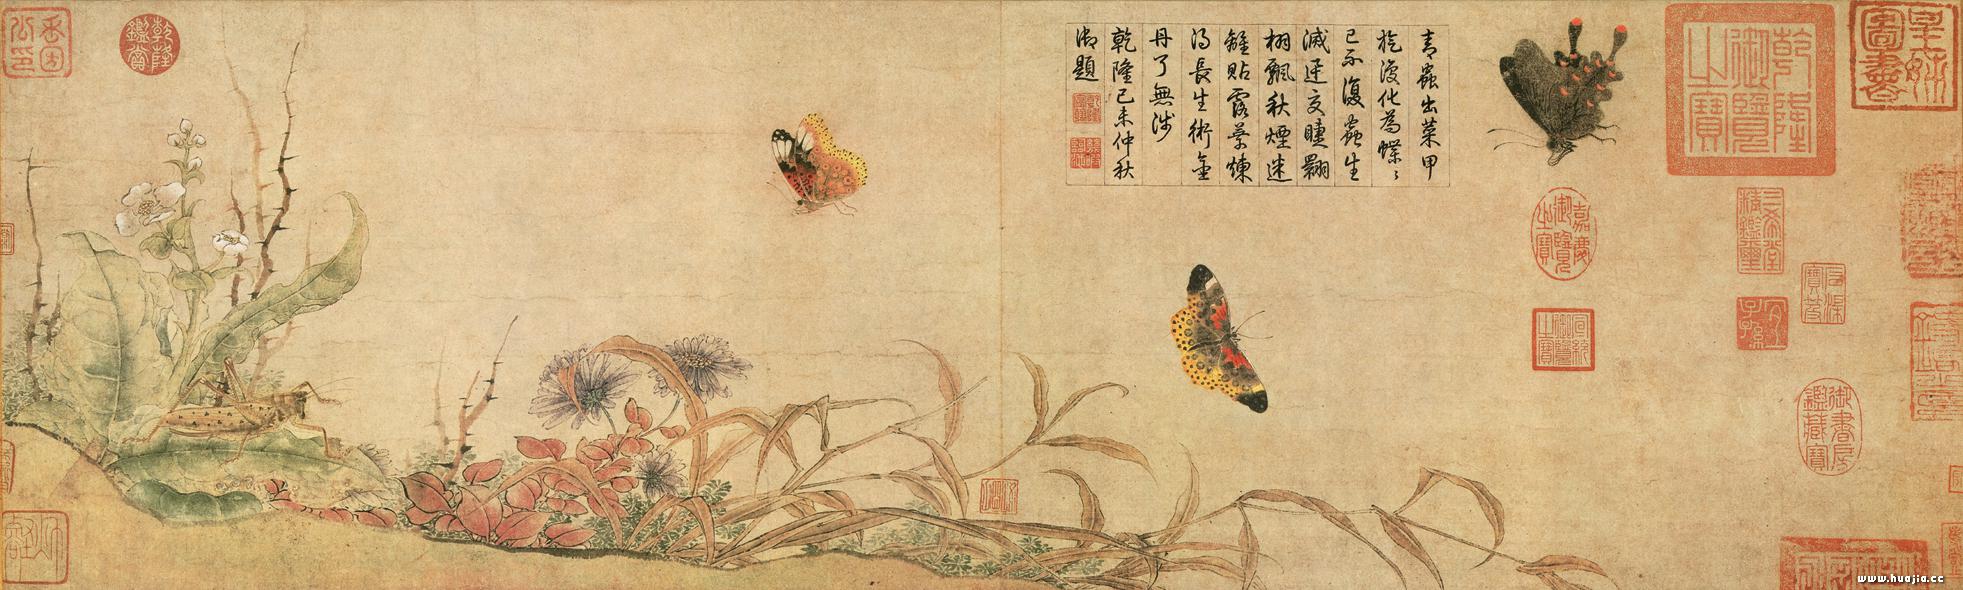 皇姊圖書
乾隆御覽之寶
三希堂精鑑璽
石渠寶笈
宜子孫
御書房鑑藏寶
嘉慶御覽之寶
宣統御覽之寶
青蟲出菜甲
旋復化為蝶〻
已不復蟲生
滅逆交睫翾
栩飄秋煙迷
離貼露葉煉
得長生術金
丹了無涉
乾隆己未仲秋
御題
乾隆鑑賞
www.huajia.cc